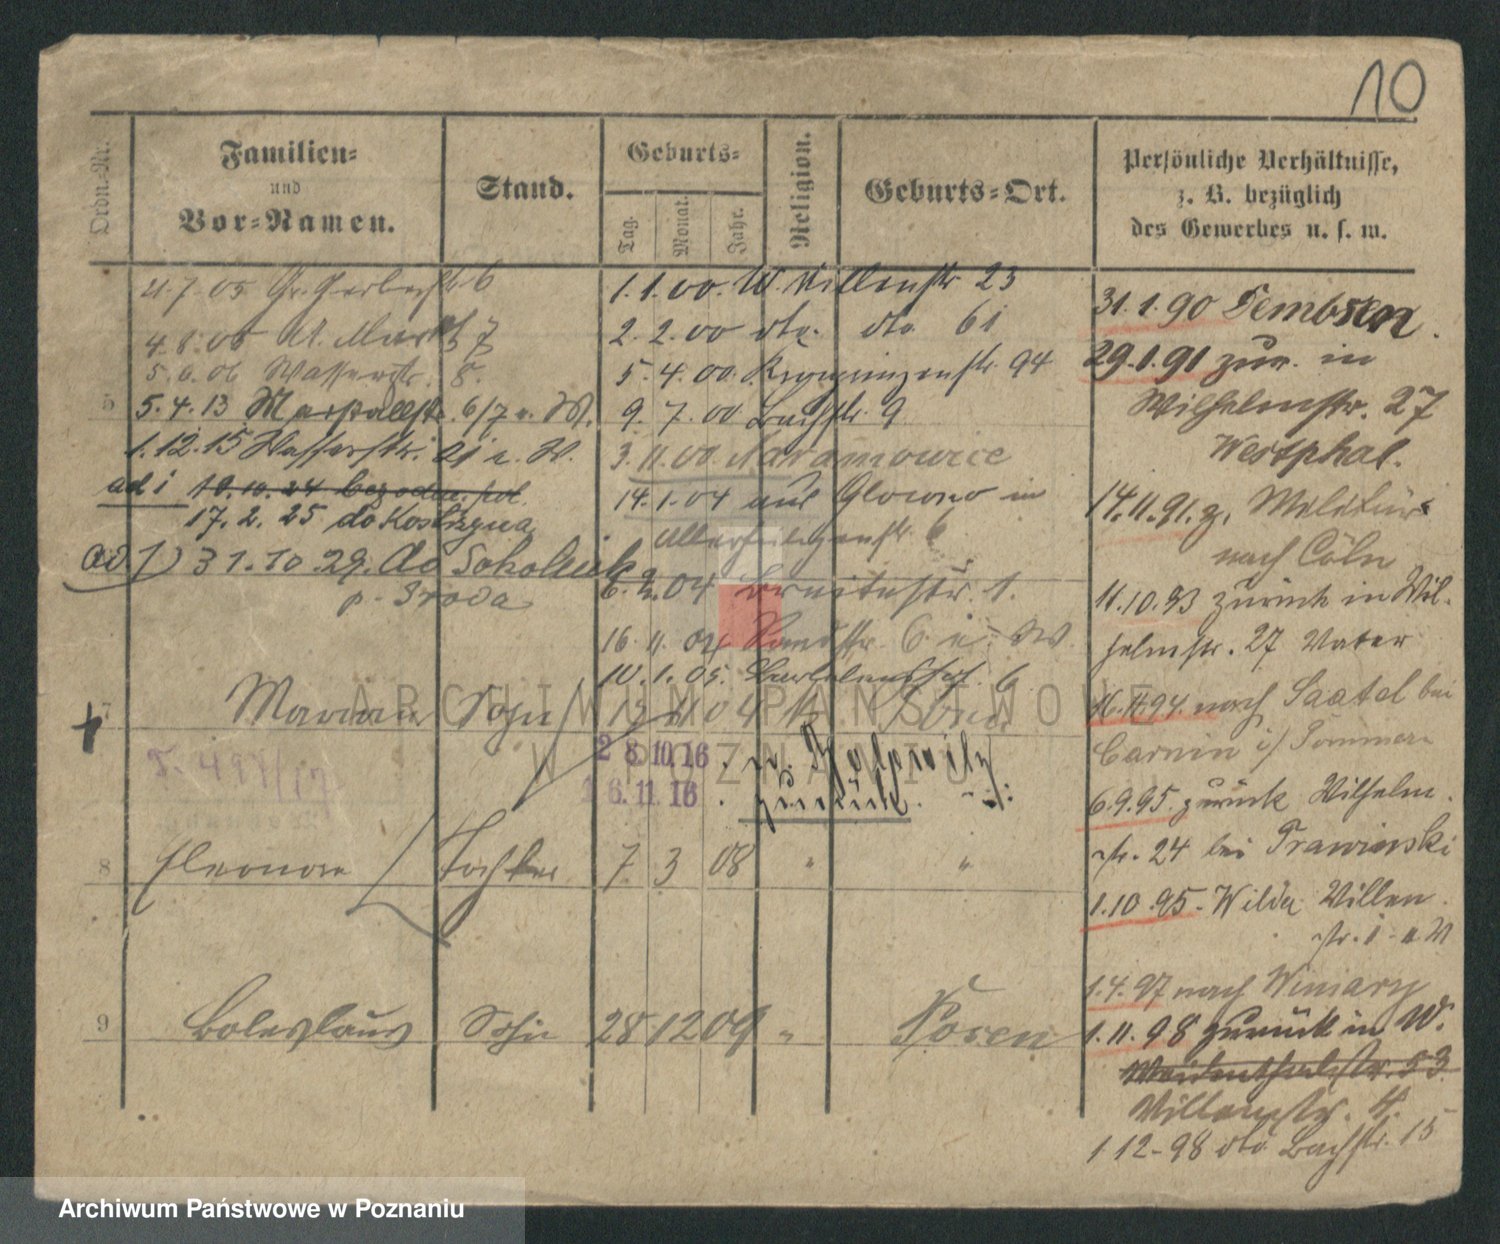 10
Ordn.-Nr.
Familien-
und
Vor-Namen.
Stand.
Geburts-
Tag.
Monat.
Jahr.
Religion.
Geburts-Ort.
Persönliche Verhältnisse,
z. B. bezüglich
des Gewerbes u. s. w.
21.7.05 Gr. Gerberstr. 6
4.8.06 At. Markt 7
5.6.06 Wasserstr. 8.
5
5.4.13 Marstallstr. 6/7 u. W.
1.12.15 Wasserstr. 21 u. W.
ad 1 10.10.24
17.2.25 do Kostrzyna
ad. 1) 31.10.29. do
p. Środa
1.1.00. W. Villenstr. 23
2.2.00 dto. dto 61
5.4.00. Kronprinzenstr. 94
9.7.00 Bachstr. 9
3.11.00 Naramowice
14.1.04 aus Glowno in
Allerheiligenstr. 6
6.2.04 Breitestr. 1.
16.11.04 Sandstr. 6 u. W
10.1.05.
31.1.90 Dembsen.
29.1.91 zur. in
Wilhelmstr. 27
Westphal.
14.11.91. z. Militär
nach Cöln
11.10.93 zurück in Wil-
helmstr. 27 Vater
16.11.94 nach Saatel bei
Carnin i/ Pommern
6.9.95. zurück Wilhelm
str. 24 bei Prawinski
1.10.95. Wilda Villen
str. 1 u W
1.4.97 nach Winiary
1.11.98 zurück in W.
Weidenthalstr. 53
Villenstr. 4.
1 12-98 dto Bachstr. 15
7 Marian Sohn 13 11 04
28.10.16
16.11.16 . zurück.
8 Eleonore Tochter 7 3 08 " "
9 Boleslaus Sohn 28 12 09 " Posen
ARCHIWUM PAŃSTWOWE
W POZNANIU
Archiwum Państwowe w Poznaniu